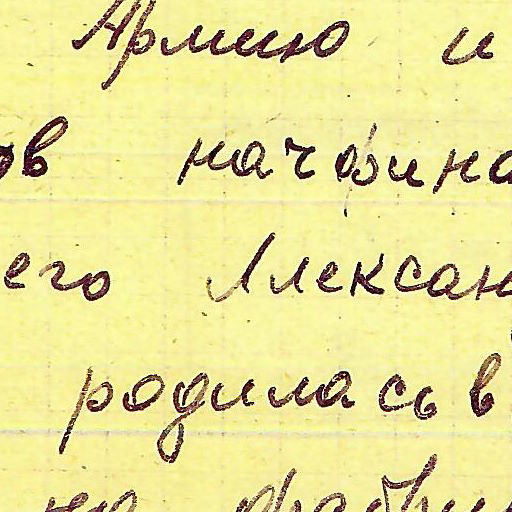 Армию и
ов начфина
его Алексан
родилась в
на фабри